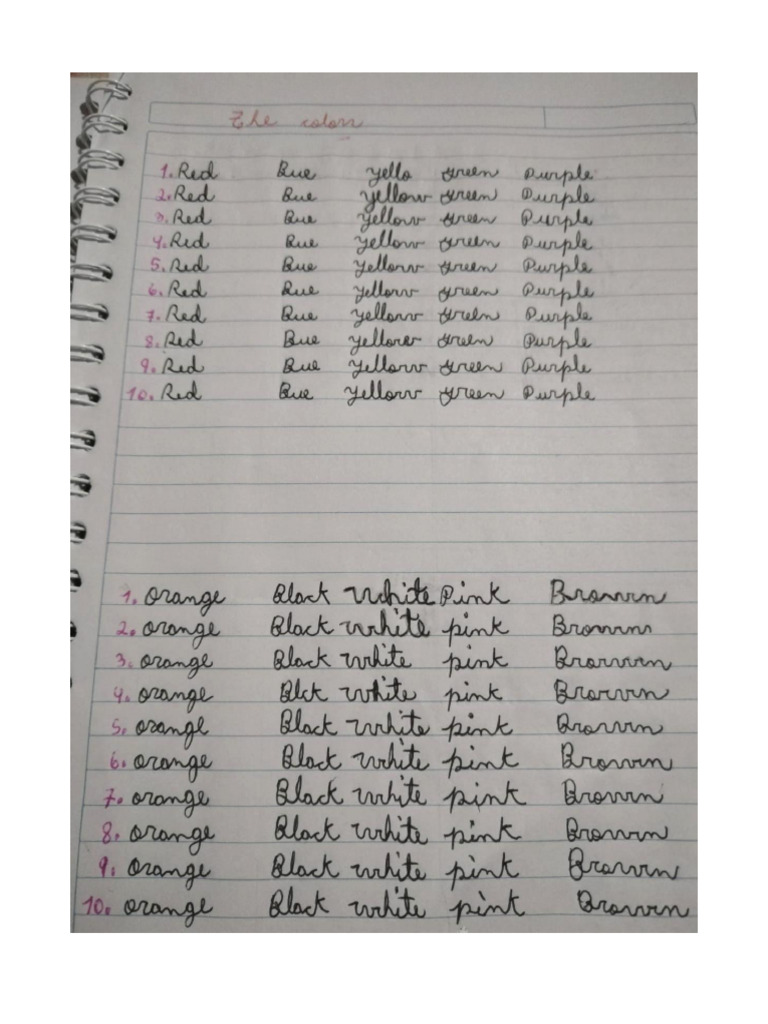 The colors
1. Red Bue yello green Purple
2. Red Bue yellow green Purple
3. Red Bue yellow green Purple
4. Red Bue yellow green Purple
5. Red Bue yellow green Purple
6. Red Bue yellow green Purple
7. Red Bue yellow green Purple
8. Red Bue yellower green Purple
9. Red Bue yellow green Purple
10. Red Bue yellow green Purple
1. orange Black White Pink Brown
2. orange Black White pink Brown
3. orange Black White pink Brown
4. orange Blck White pink Brown
5. orange Black White pink Brown
6. orange Black White pink Brown
7. orange Black White pink Brown
8. orange Black White pink Brown
9. orange Black White pink Brown
10. orange Black White pink Brown